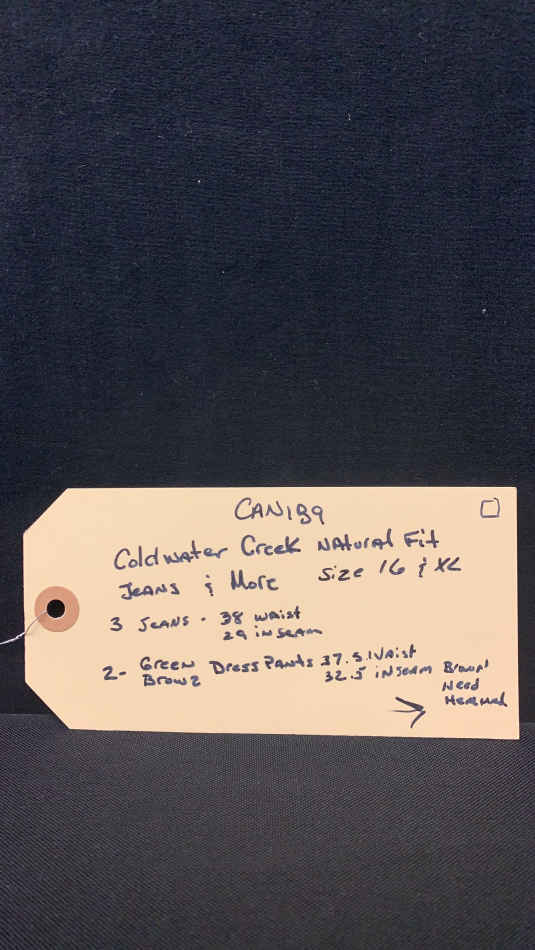 CAN189
Coldwater Creek Natural Fit
Jeans & More Size 16 & XL
3 Jeans - 38 waist
29 inseam
2- Green Dress Pants 37.5 waist
Brown 32.5 inseam Brown
Need
Hemmed